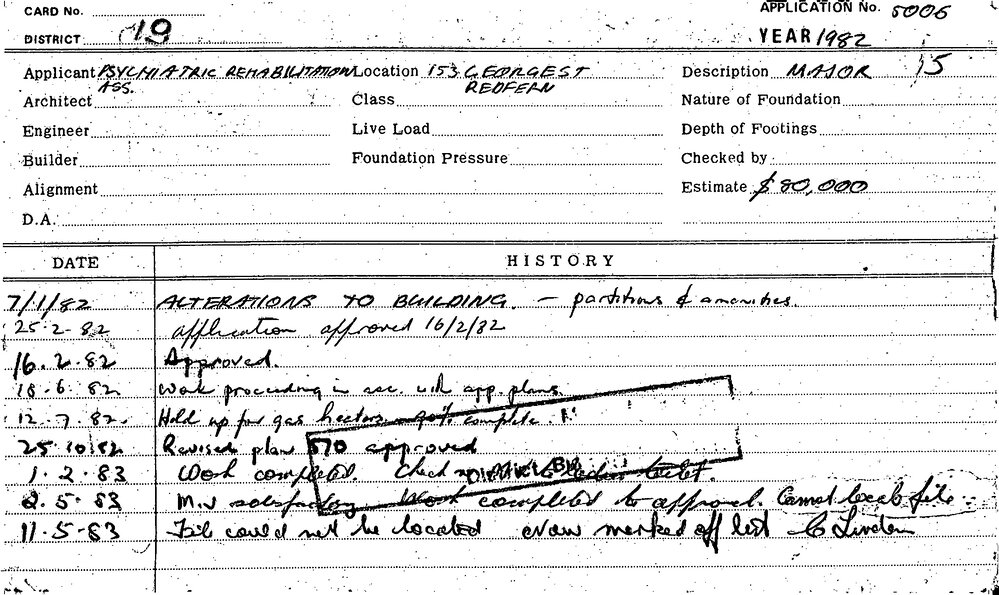 CARD No.
APPLICATION No. 5006
DISTRICT 19
YEAR 1982
Applicant PSYCHIATRIC REHABILITATION ASS.
Location 153 GEORGE ST REDFERN
Description MAJOR 15
Architect
Class
Nature of Foundation
Engineer
Live Load
Depth of Footings
Builder
Foundation Pressure
Checked by
Alignment
Estimate $80,000
D.A.
DATE HISTORY
7/1/82 ALTERATIONS TO BUILDING. - partitions & amenities
25-2-82 application approved 16/2/82
16.2.82 Approved.
18.6.82 Work proceeding in acc. with app. plans
12.7.82 Hold up for gas heaters 90% complete.
25.10.82 Revised plan 570 approved
1.2.83 Work completed. Check
2.5.83 M.V satisfactory Work completed to approval. Cannot locate file
11.5-83 File could not be located Now marked off list C Lindon